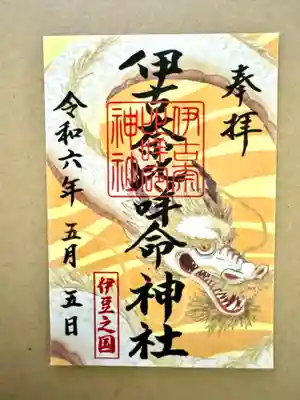 奉拝
伊古奈比咩命神社
伊古奈比咩命神社
令和六年 五月 五日
伊豆之国